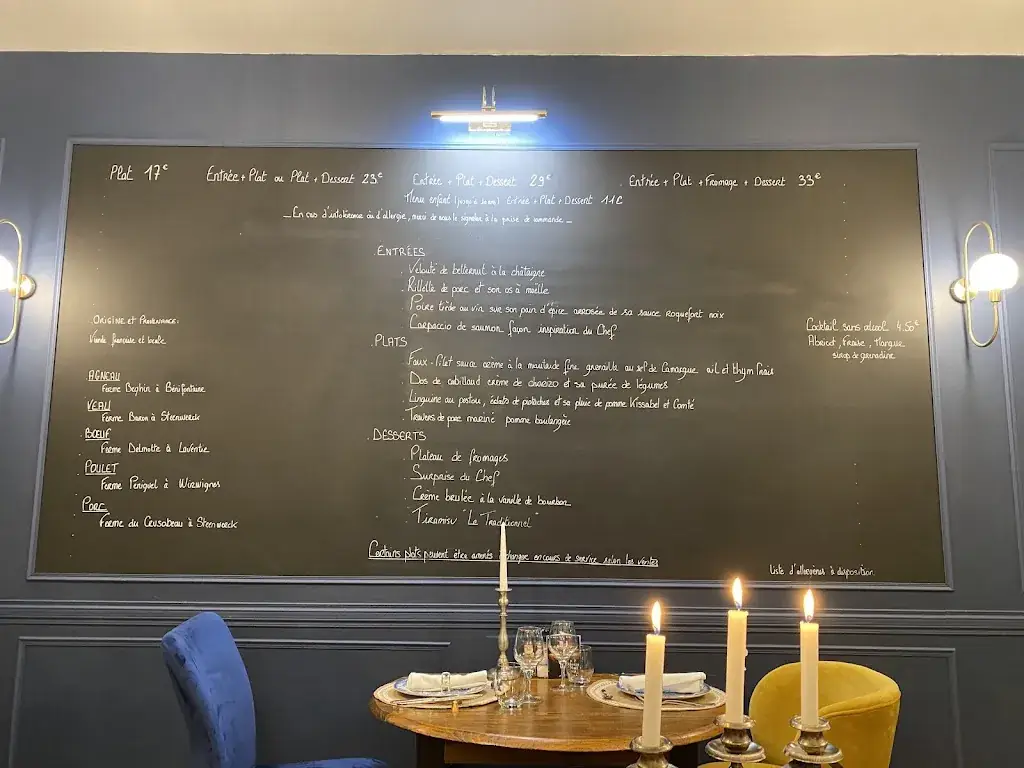 Plat 17€
Entrée + Plat ou Plat + Dessert 23€
Entrée + Plat + Dessert 29€
Entrée + Plat + Fromage + Dessert 33€
Menu enfant Entrée + Plat + Dessert 11€
_ En cas d'intolérance ou d'allergie, merci de nous le signaler à la prise de commande _
ENTRÉES
. Velouté de butternut à la châtaigne
. Rillette de porc et son os à moëlle
. Poire tiède au vin sur son pain d'épice arrosée de sa sauce roquefort noix
. Carpaccio de saumon façon inspiration du Chef
. PLATS
. Faux-filet sauce crème à la moutarde fine grenaille au sel de Camargue ail et thym frais
. Dos de cabillaud crème de chorizo et sa purée de légumes
. Linguine au pesto, éclats de pistaches et sa pomme Kissabel et Comté
. Travers de porc mariné pomme boulangère
. DESSERTS
. Plateau de fromages
. Surprise du Chef
. Crème brulée à la vanille de bourbon
. Tiramisu "Le Traditionnel"
Certains plats peuvent être amenés à changer en cours de service selon les ventes
. ORIGINE ET PROVENANCE :
Viande française et locale
. AGNEAU
Ferme Beghin à Bénifontaine
VEAU
Ferme Baron à Steenwerck
. BŒUF
Ferme Delmotte à Laventie
POULET
Ferme Periguel à Wirwignes
. PORC
Ferme du Crusobeau à Steenwerck
Cocktail sans alcool 4.50€
Abricot, Fraise, Mangue
sirop de grenadine
Liste d'allergènes à disposition